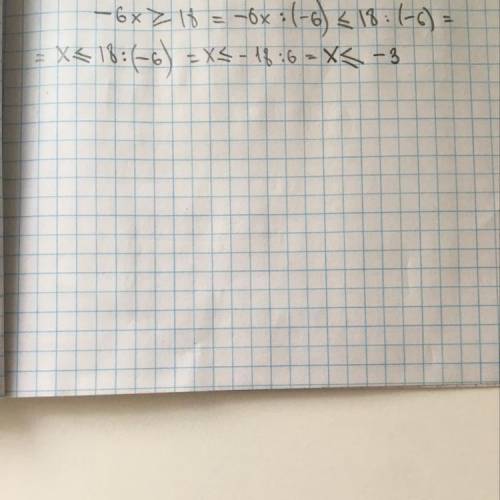 -6x ≥ 18 = -6x : (-6) ≤ 18 : (-6) =
= x ≤ 18 : (-6) = x ≤ -18 : 6 = x ≤ -3